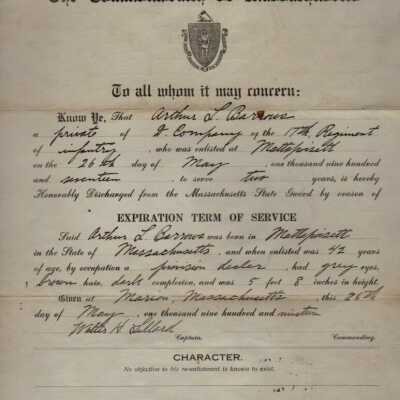 The Commonwealth of Massachusetts
To all whom it may concern:
Know Ye, That Arthur L. Barrows
a private of D. Company of the 17th Regiment
of infantry, who was enlisted at Mattapoisett
on the 26th day of May, one thousand nine hundred
and seventeen, to serve two years, is hereby
Honorably Discharged from the Massachusetts State Guard by reason of
EXPIRATION TERM OF SERVICE
Said Arthur L. Barrows was born in Mattapoisett
in the State of Massachusetts, and when enlisted was 42 years
of age, by occupation a provision dealer, had grey eyes,
brown hair, dark complexion, and was 5 feet 8 inches in height.
Given at Marion, Massachusetts, this 26th
day of May, one thousand nine hundred and nineteen
Walter H. Lillard
Captain, Commanding.
CHARACTER.
No objection to his re-enlistment is known to exist.